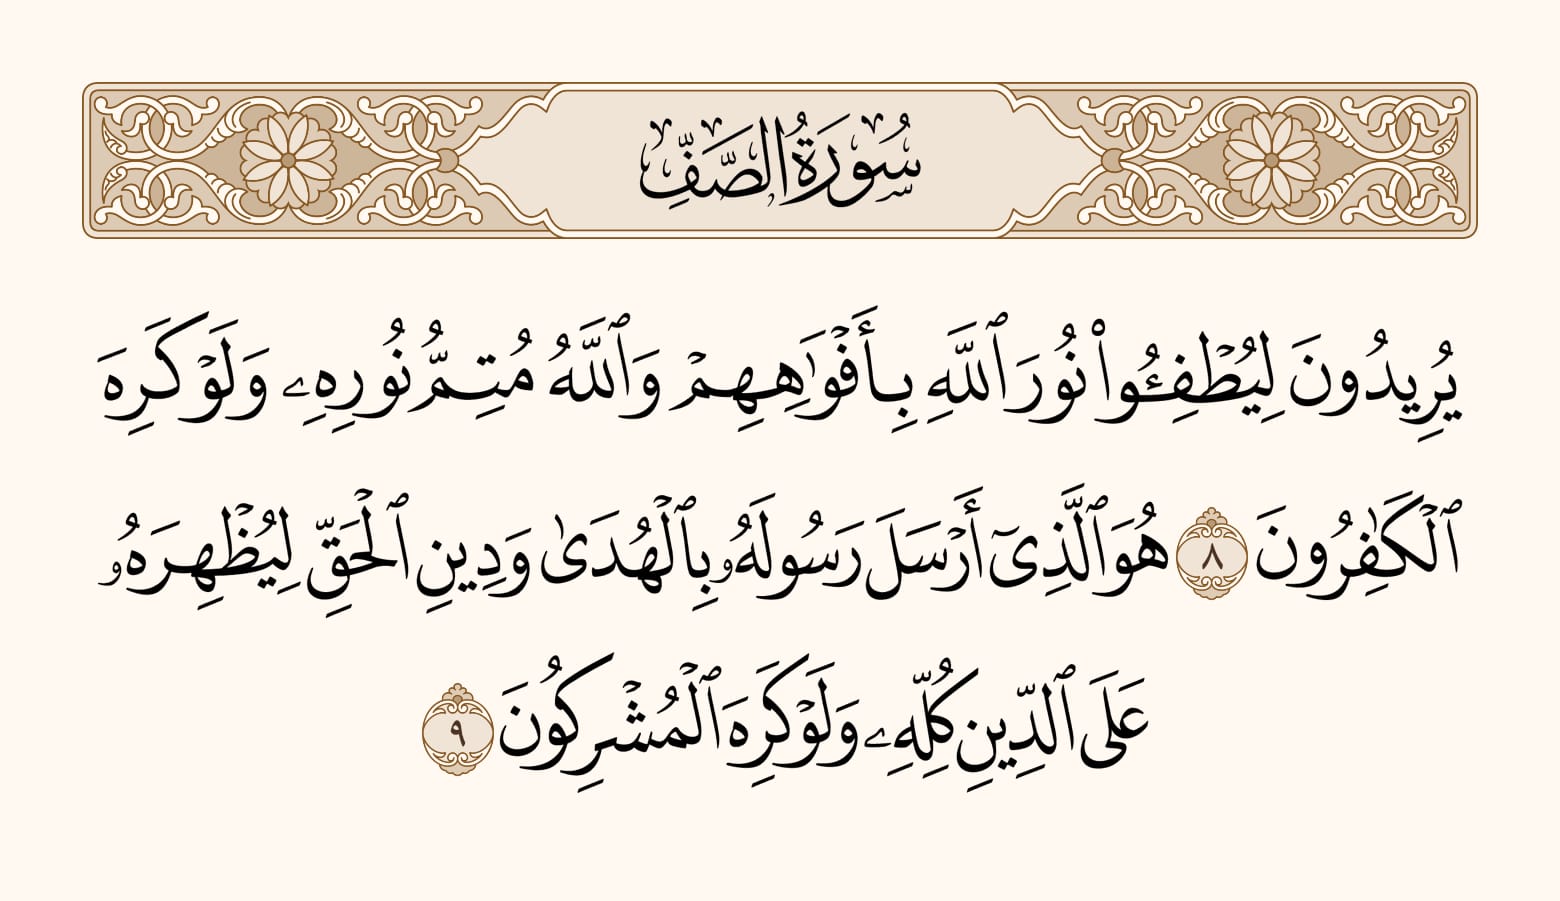 سُورَةُ الصَّفِّ
يُرِيدُونَ لِيُطْفِـُٔوا۟ نُورَ ٱللَّهِ بِأَفْوَٰهِهِمْ وَٱللَّهُ مُتِمُّ نُورِهِۦ وَلَوْ كَرِهَ
ٱلْكَـٰفِرُونَ ٨ هُوَ ٱلَّذِىٓ أَرْسَلَ رَسُولَهُۥ بِٱلْهُدَىٰ وَدِينِ ٱلْحَقِّ لِيُظْهِرَهُۥ
عَلَى ٱلدِّينِ كُلِّهِۦ وَلَوْ كَرِهَ ٱلْمُشْرِكُونَ ٩